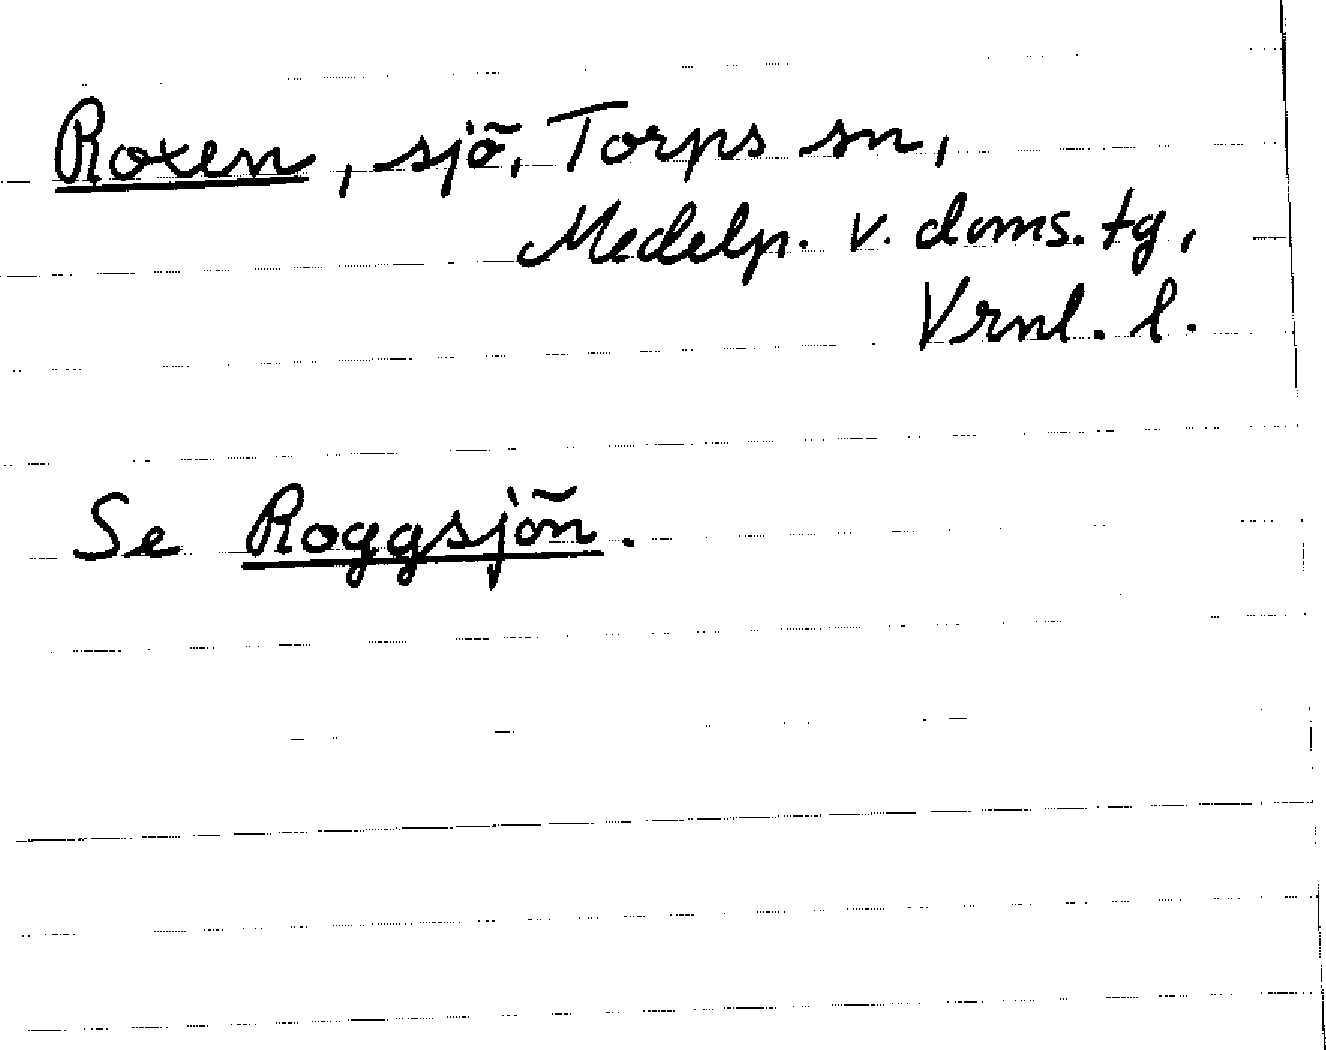 Roxen, sjö, Torps sn,
Medelp. v. doms. tg,
Vrnl. l.
Se Roggsjön.